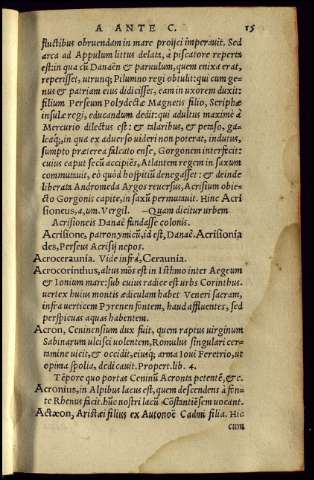 A ANTE C. 15
fluctibus obruendam in mare projici imperauit. Sed
arca ad Appulum littus delata, à piscatore reperta
est: in qua cũ Danaën & paruulum, quem enixa erat,
reperisset, utrunq; Pilumno regi obtulit: qui cum ge-
nus & patriam eius didicisset, eam in uxorem duxit:
filium Perseum Polydectæ Magnetis filio, Seriphæ
insulæ regi, educandum dedit: qui adultus maximè à
Mercurio dilectus est: & talaribus, & petaso, ga-
leaq;, in qua ex aduerso uideri non poterat, indutus,
sumpto præterea falcato ense, Gorgonem interfecit:
cuius caput secũ accipiẽs, Atlantem regem in saxum
commutauit, eò quòd hospitiũ denegasset: & deinde
liberata Andromeda Argos reuersus, Acrisium obie-
cto Gorgonis capite, in saxũ permutauit. Hinc Acri
sioneus, a, um. Vergil. —Quam dicitur urbem
Acrisioneis Danaë fundasse colonis.
Acrisione, patronymicũ, id est, Danaë. Acrisionia
des, Perseus Acrisij nepos.
Acroceraunia. Vide infrà, Ceraunia.
Acrocorinthus, altus mõs est in Isthmo inter Aegeum
& Ionium mare: sub cuius radice est urbs Corinthus.
uertex huius montis ædiculam habet Veneri sacram,
infra uerticem Pyrenen fontem, haud affluentes, sed
perspicuas aquas habentem.
Acron, Ceninensium dux fuit, quem raptus uirginum
Sabinarum ulcisci uolentem, Romulus singulari cer-
tamine uicit, & occidit, eiusq; arma Ioui Feretrio, ut
opima spolia, dedicauit. Propert. lib. 4.
Tẽpore quo portas Ceninũ Acronta petentẽ, & c.
Acronius, in Alpibus lacus est, quem descendens à fon-
te Rhenus facit. hũc nostri lacũ Cõstantiẽsem uocant.
Actæon, Aristæi filius ex Autonoë Cadmi filia. Hic
cum